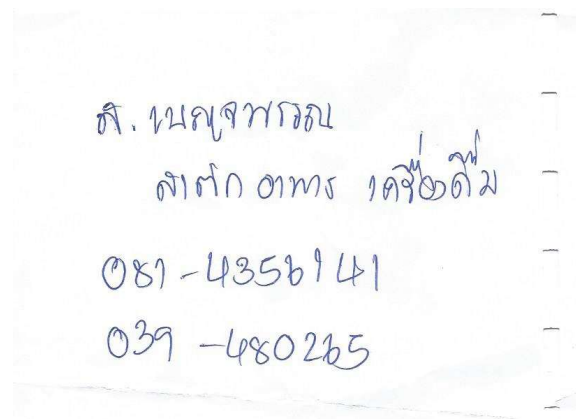 ส. เบญจพรรณ
สาตัก อาหาร เครื่องดื่ม
081-4356141
039-480265